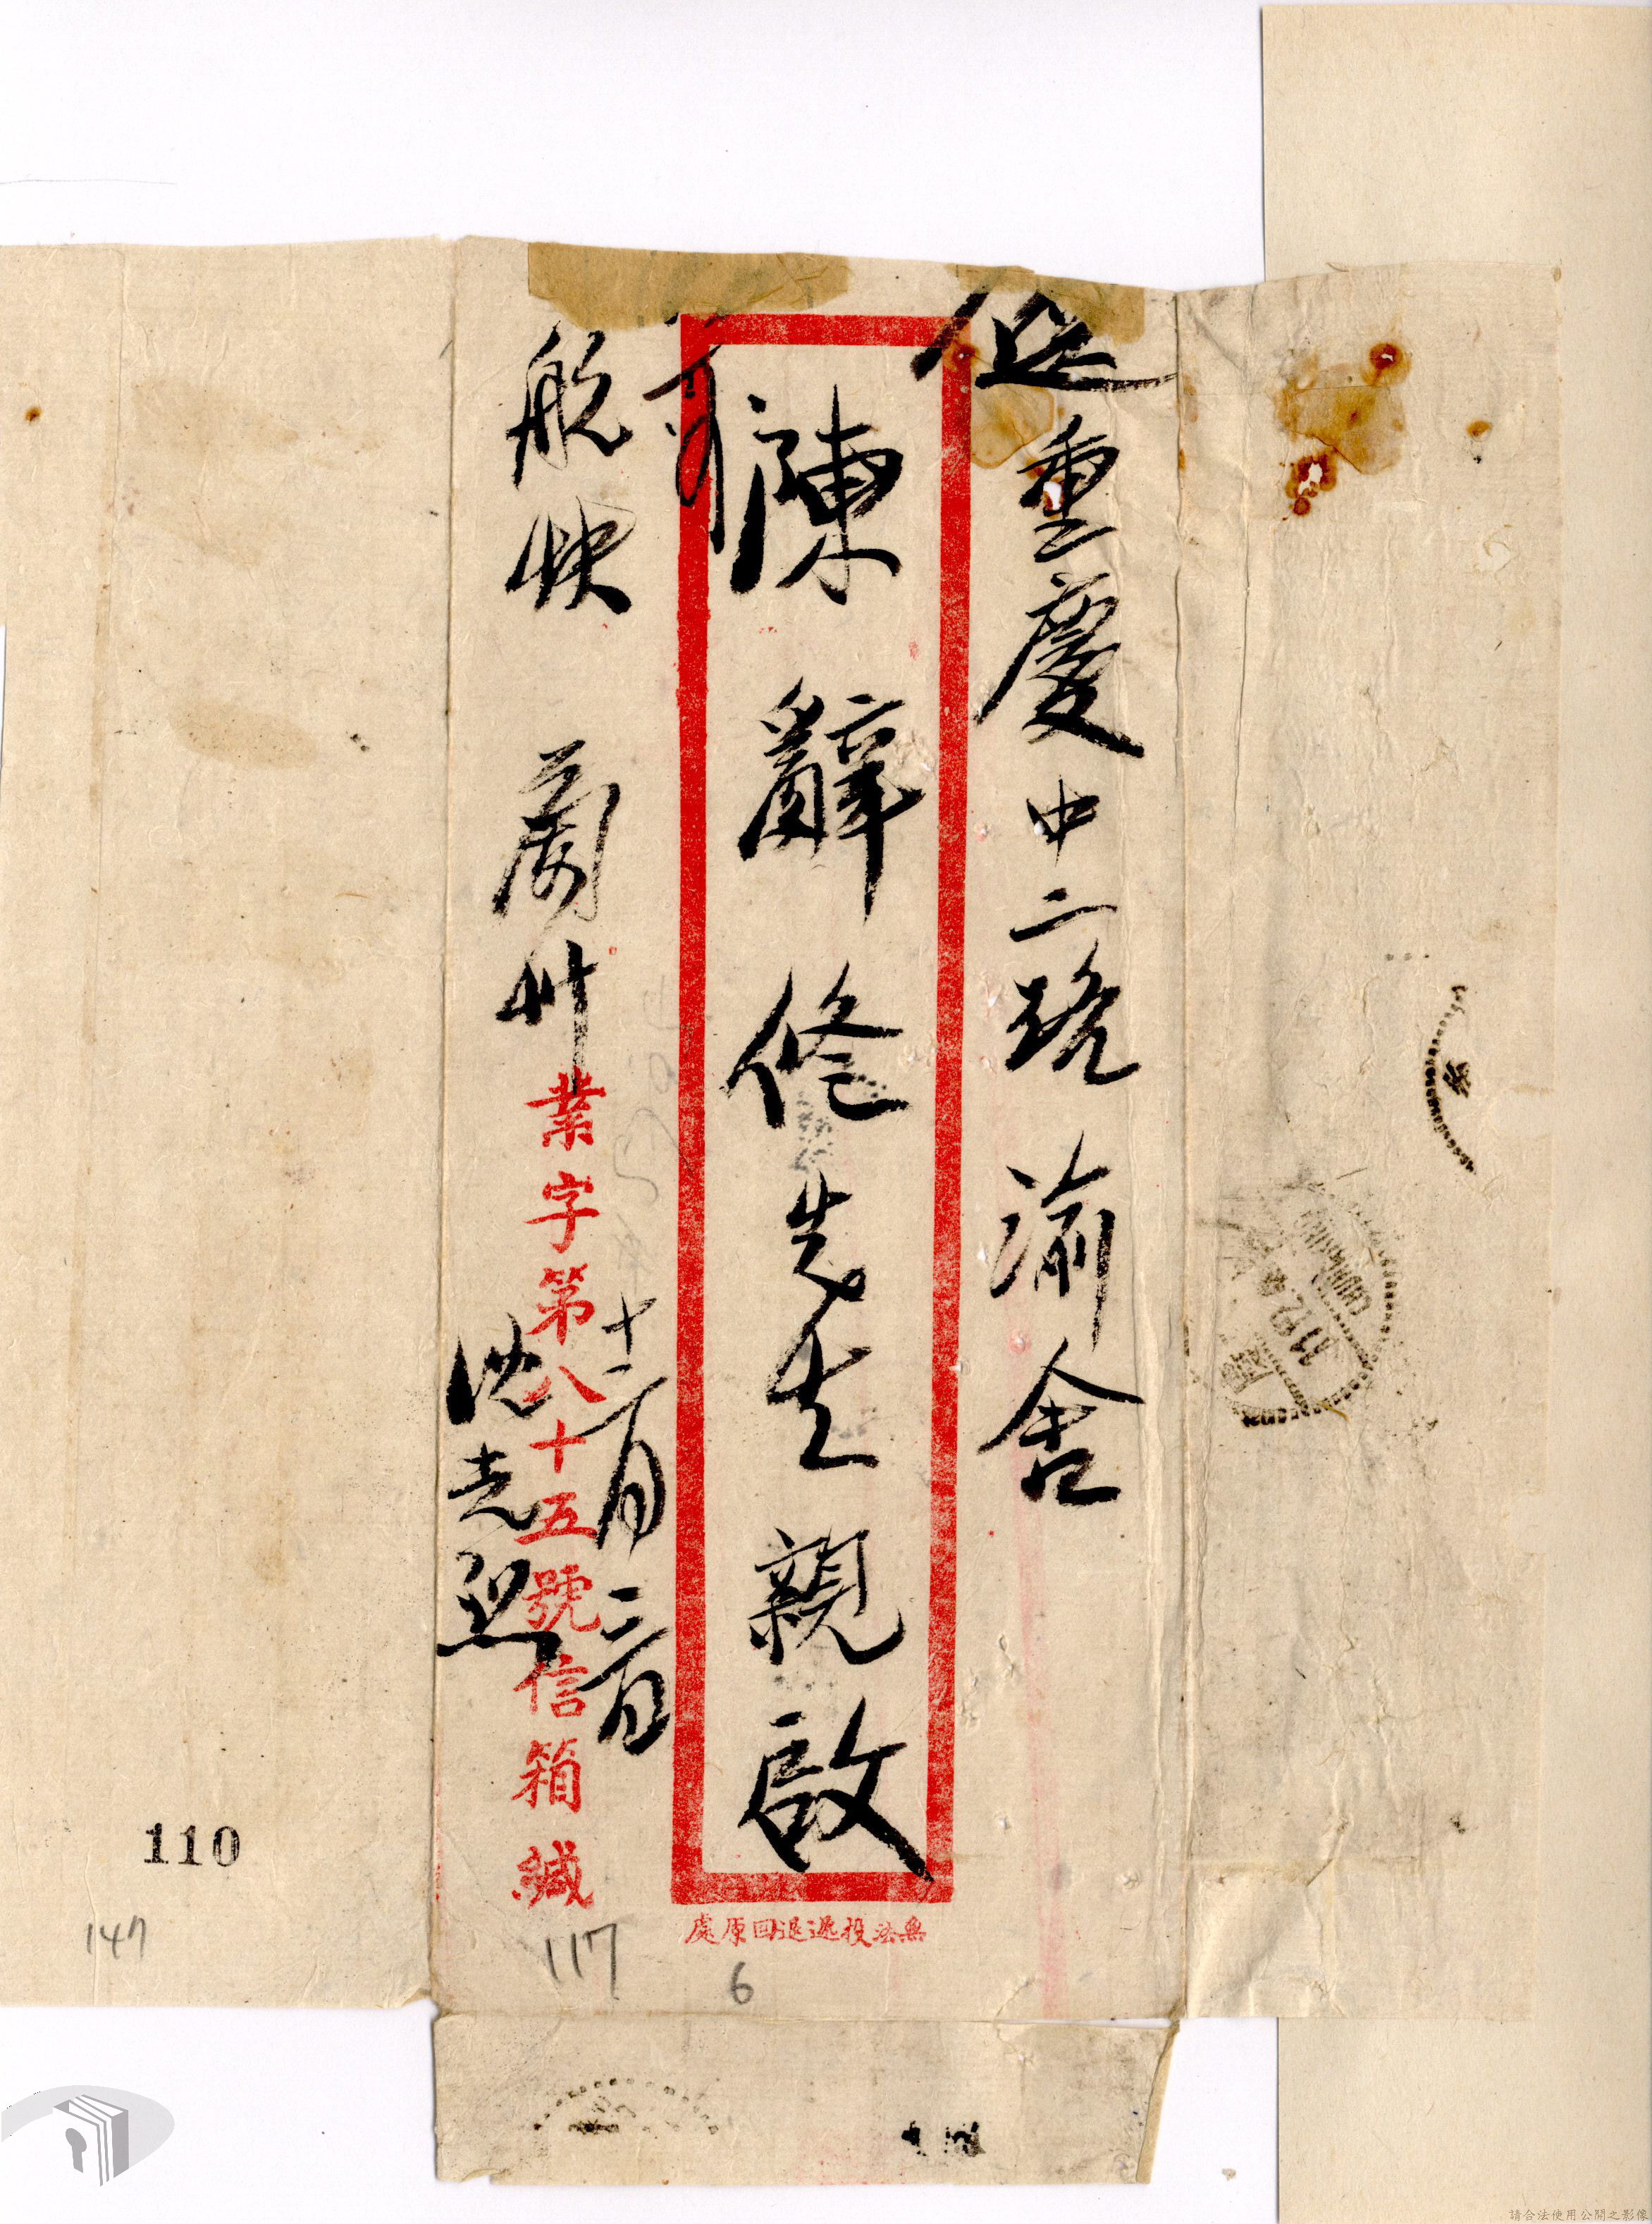 送重慶中二路渝舍
陳辭修先生親啟
航快
蘭州
業字第八十五號信箱緘
沈克
十二月二日
無法投遞退回原處
110
147
117
6
11.12.
請合法使用公開之影像